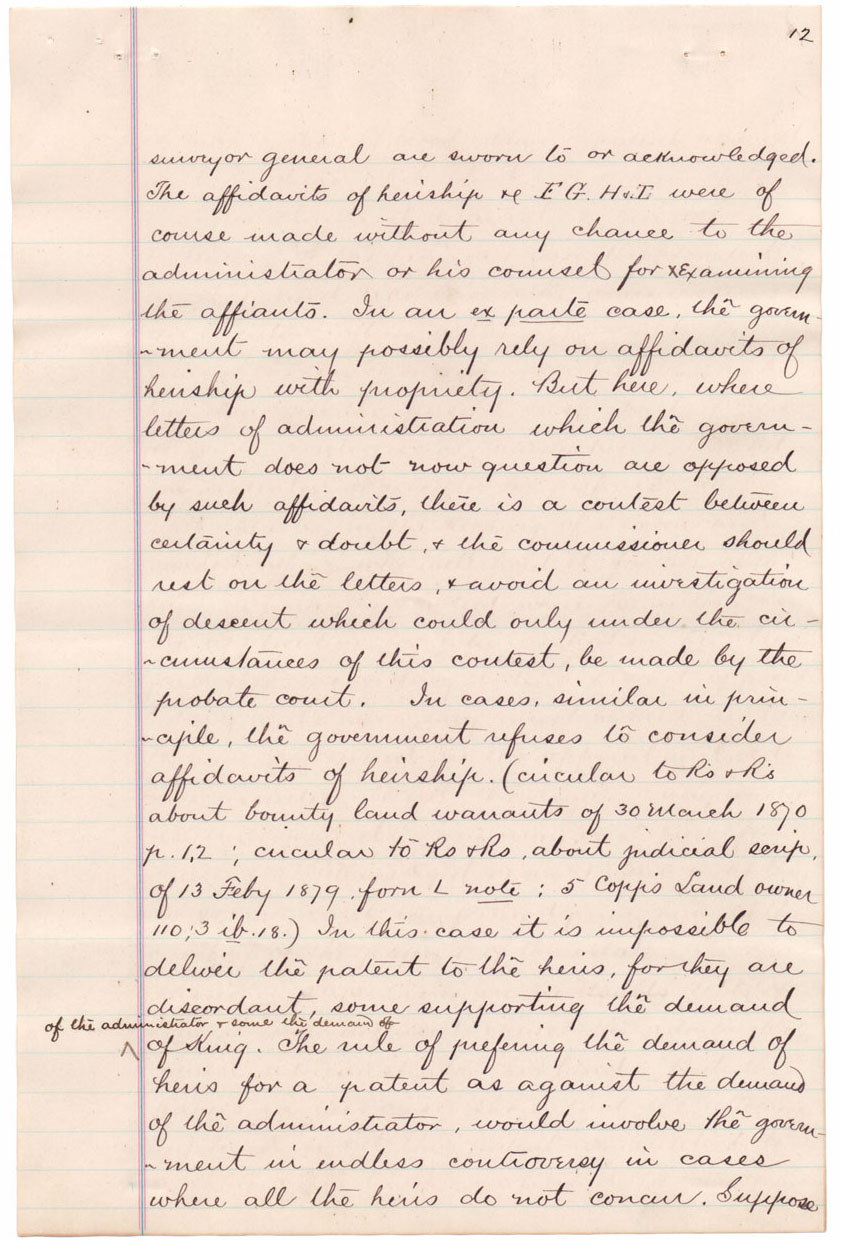 12
surveyor general are sworn to or acknowledged.
The affidavits of heirship &c E G. H & I were of
course made without any chance to the
administrator or his counsel for xExamining
the affiants. In an ex parte case, the govern-
-ment may possibly rely on affidavits of
heirship with propriety. But here, where
letters of administration which the govern-
-ment does not now question are opposed
by such affidavits, there is a contest between
certainty & doubt, & the commissioner should
rest on the letters, & avoid an investigation
of descent which could only under the cir-
-cumstances of this contest, be made by the
probate court. In cases, similar in prin-
-ciple, the government refuses to consider
affidavits of heirship. (circular to Rs & Rs
about bounty land warrants of 30 March 1870
p. 12; circular to Rs & Rs, about judicial scrip,
of 13 Feby 1879, form L note; 5 Copp's Land owner
110; 3 ib. 18.) In this case it is impossible to
deliver the patent to the heirs, for they are
discordant, some supporting the demand
of the administrator & some the demand of
of King. The rule of prefering the demand of
heirs for a patent as against the demand
of the administrator, would involve the govern-
-ment in endless controversy in cases
where all the heirs do not concur. Suppose